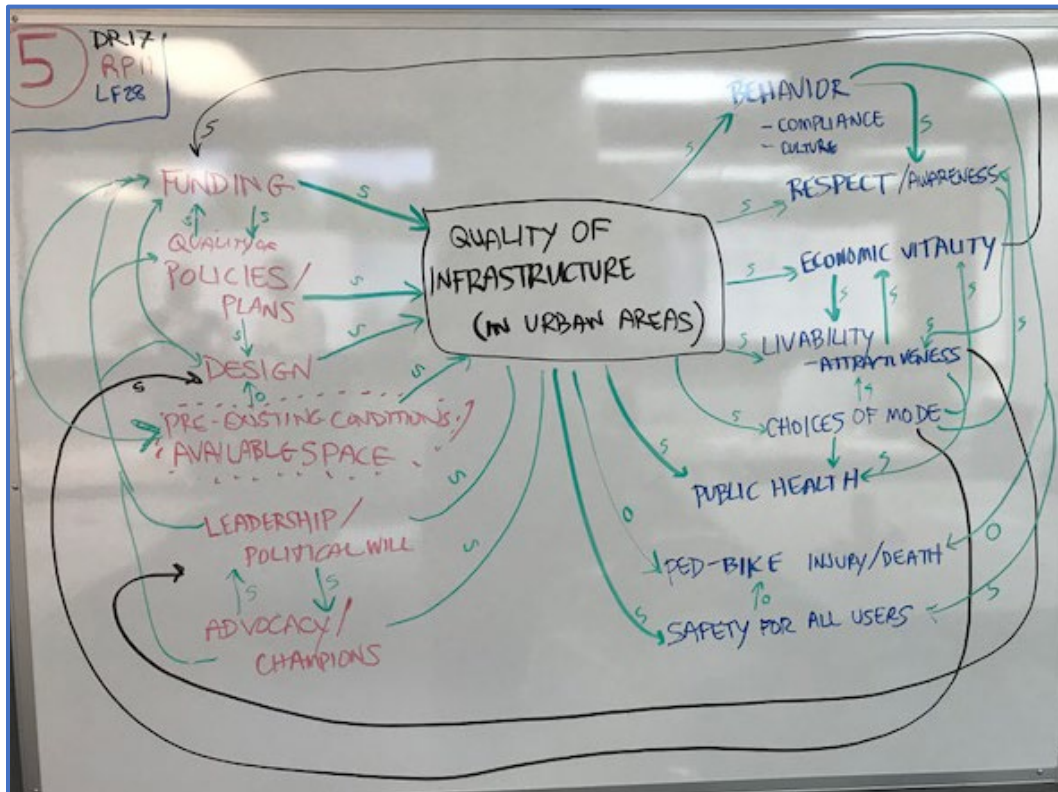 5
DR17
RP11
LF28
FUNDING
QUALITY OF
POLICIES/
PLANS
DESIGN
PRE-EXISTING CONDITIONS/
AVAILABLE SPACE
LEADERSHIP/
POLITICAL WILL
ADVOCACY/
CHAMPIONS
QUALITY OF
INFRASTRUCTURE
(IN URBAN AREAS)
BEHAVIOR
- COMPLIANCE
- CULTURE
RESPECT/AWARENESS
ECONOMIC VITALITY
LIVABILITY
- ATTRACTIVENESS
CHOICES OF MODE
PUBLIC HEALTH
PED-BIKE INJURY/DEATH
SAFETY FOR ALL USERS
S
S
S
S
S
S
S
S
O
S
S
S
S
S
S
S
S
S
S
S
S
S
S
O
S
O
O
S
S
S
S